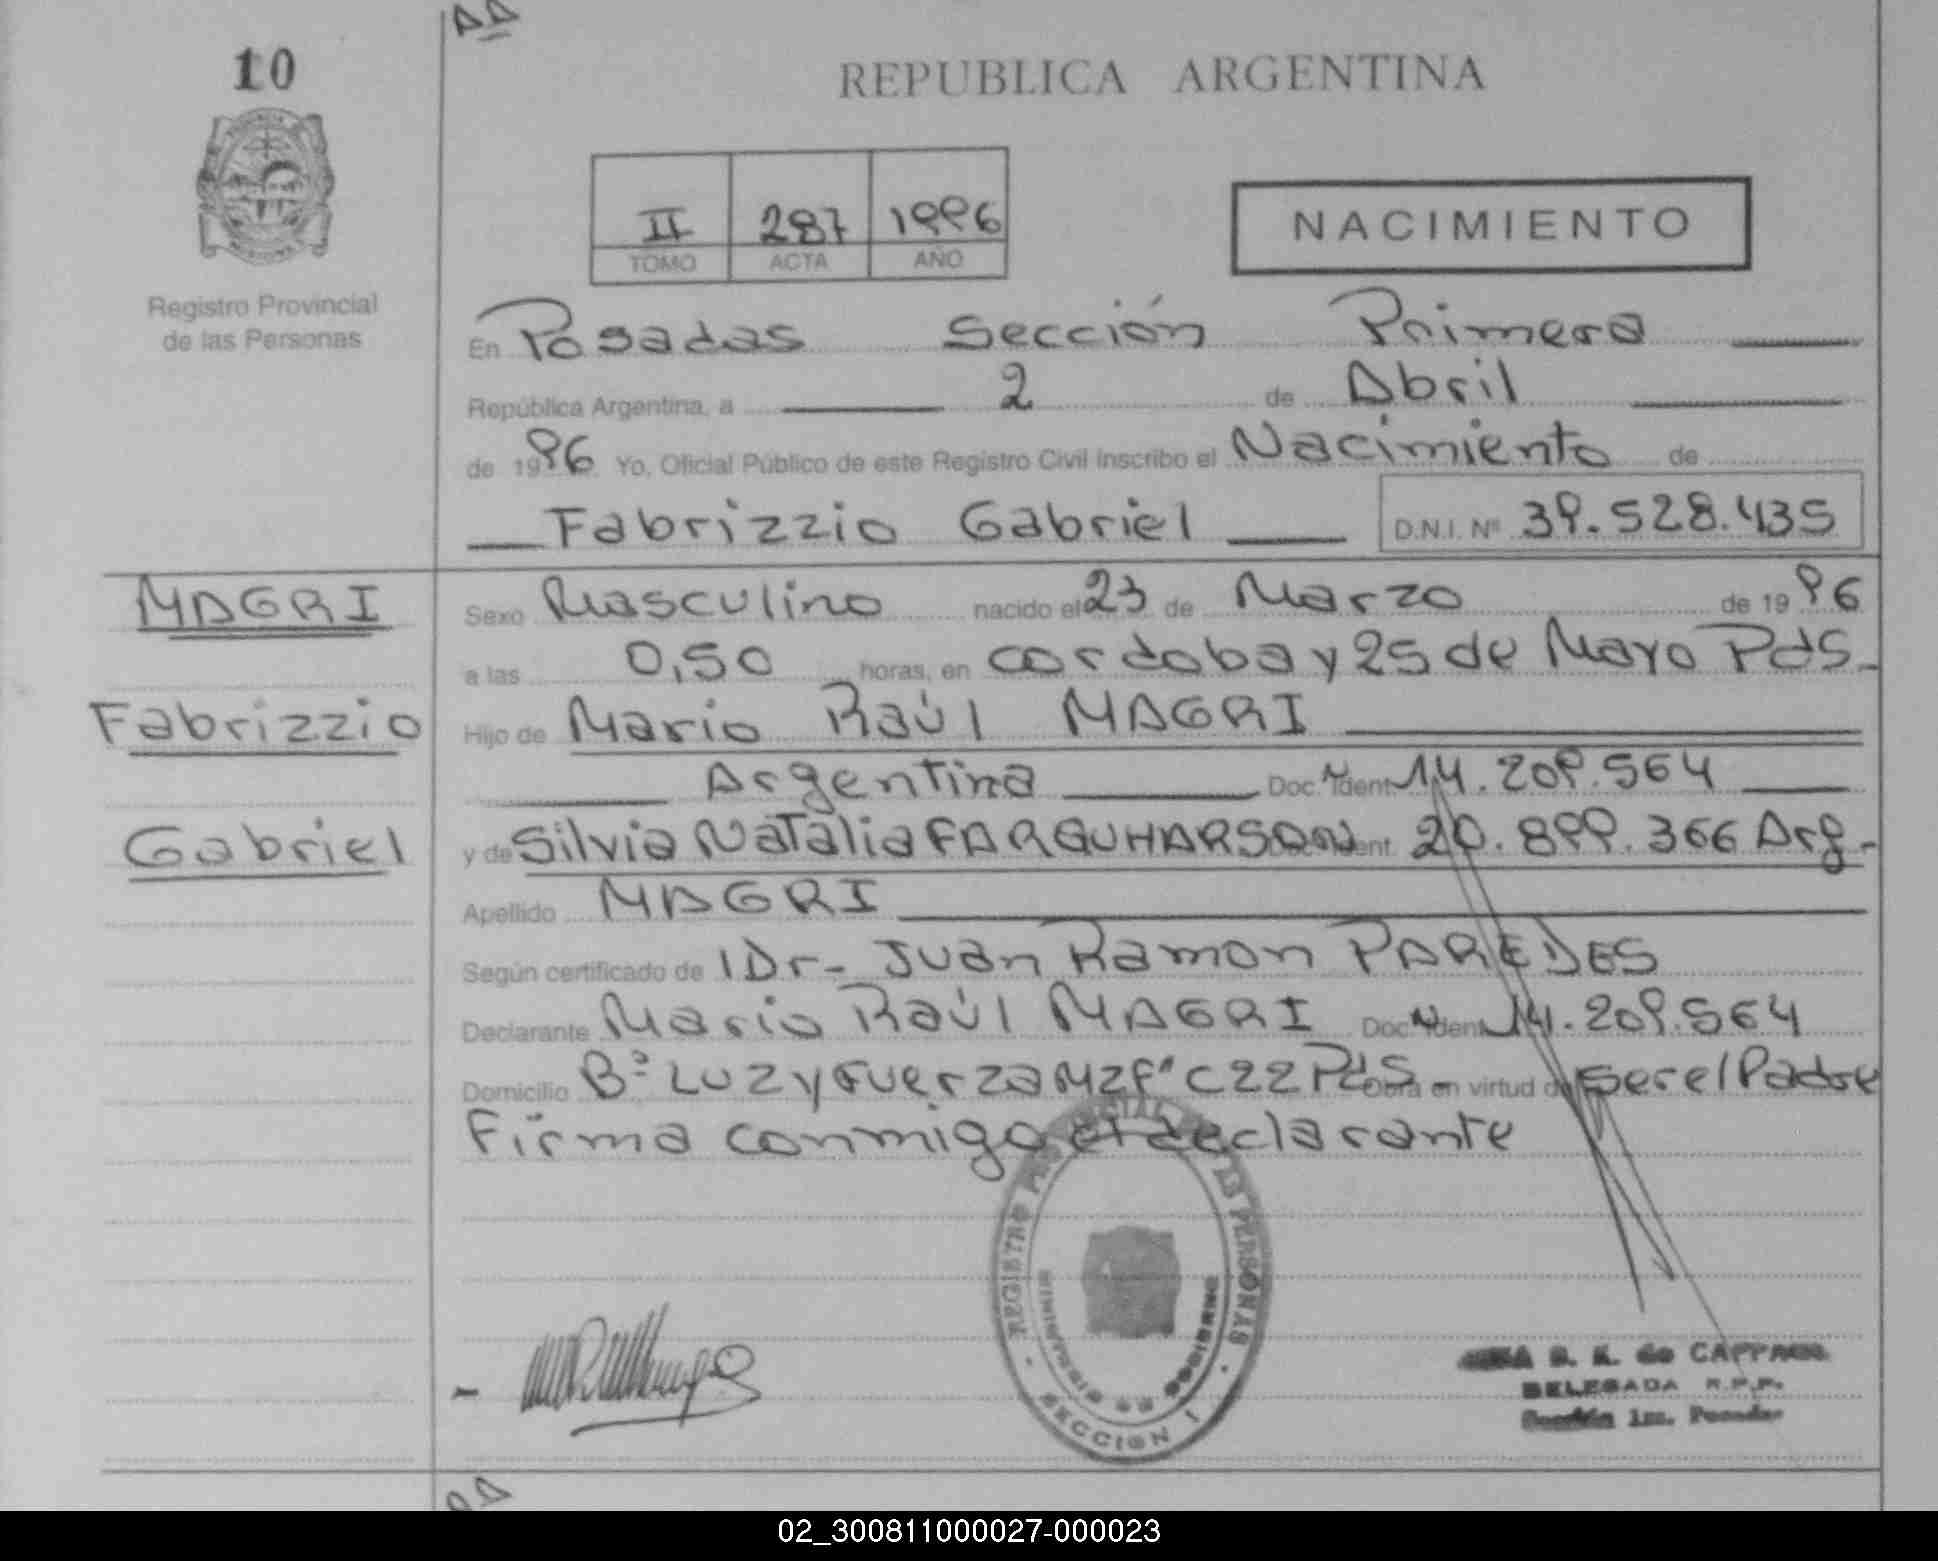 10
REPUBLICA ARGENTINA
II 287 1996
TOMO ACTA AÑO
NACIMIENTO
Registro Provincial
de las Personas
En Posadas Sección Primera
República Argentina, a 2 de Abril
de 1996 Yo, Oficial Público de este Registro Civil inscribo el Nacimiento de
Fabrizzio Gabriel D.N.I. Nº 39.528.435
MAGRI
Sexo Masculino nacido el 23 de Marzo de 1996
a las 0,50 horas, en cordoba y 25 de Mayo Pds.
Fabrizzio
Hijo de Mario Raúl MAGRI
Argentina Doc. Ident. 14.209.564
Gabriel
y de Silvia Natalia FARQUHARSON Doc. Ident. 20.899.366 Arg.
Apellido MAGRI
Según certificado de Dr. Juan Ramon PAREDES
Declarante Mario Raúl MAGRI Doc. Ident. 14.209.564
Domicilio Bº Luz y Fuerza Mz C 22 Pds. Obra en virtud de ser el Padre
Firma conmigo el declarante
REGISTRO DE LAS PERSONAS
MINISTERIO DE GOBIERNO
SECCION I
de
DELEGADA R.P.P.
Sección 1ra. Posadas
02_300811000027-000023